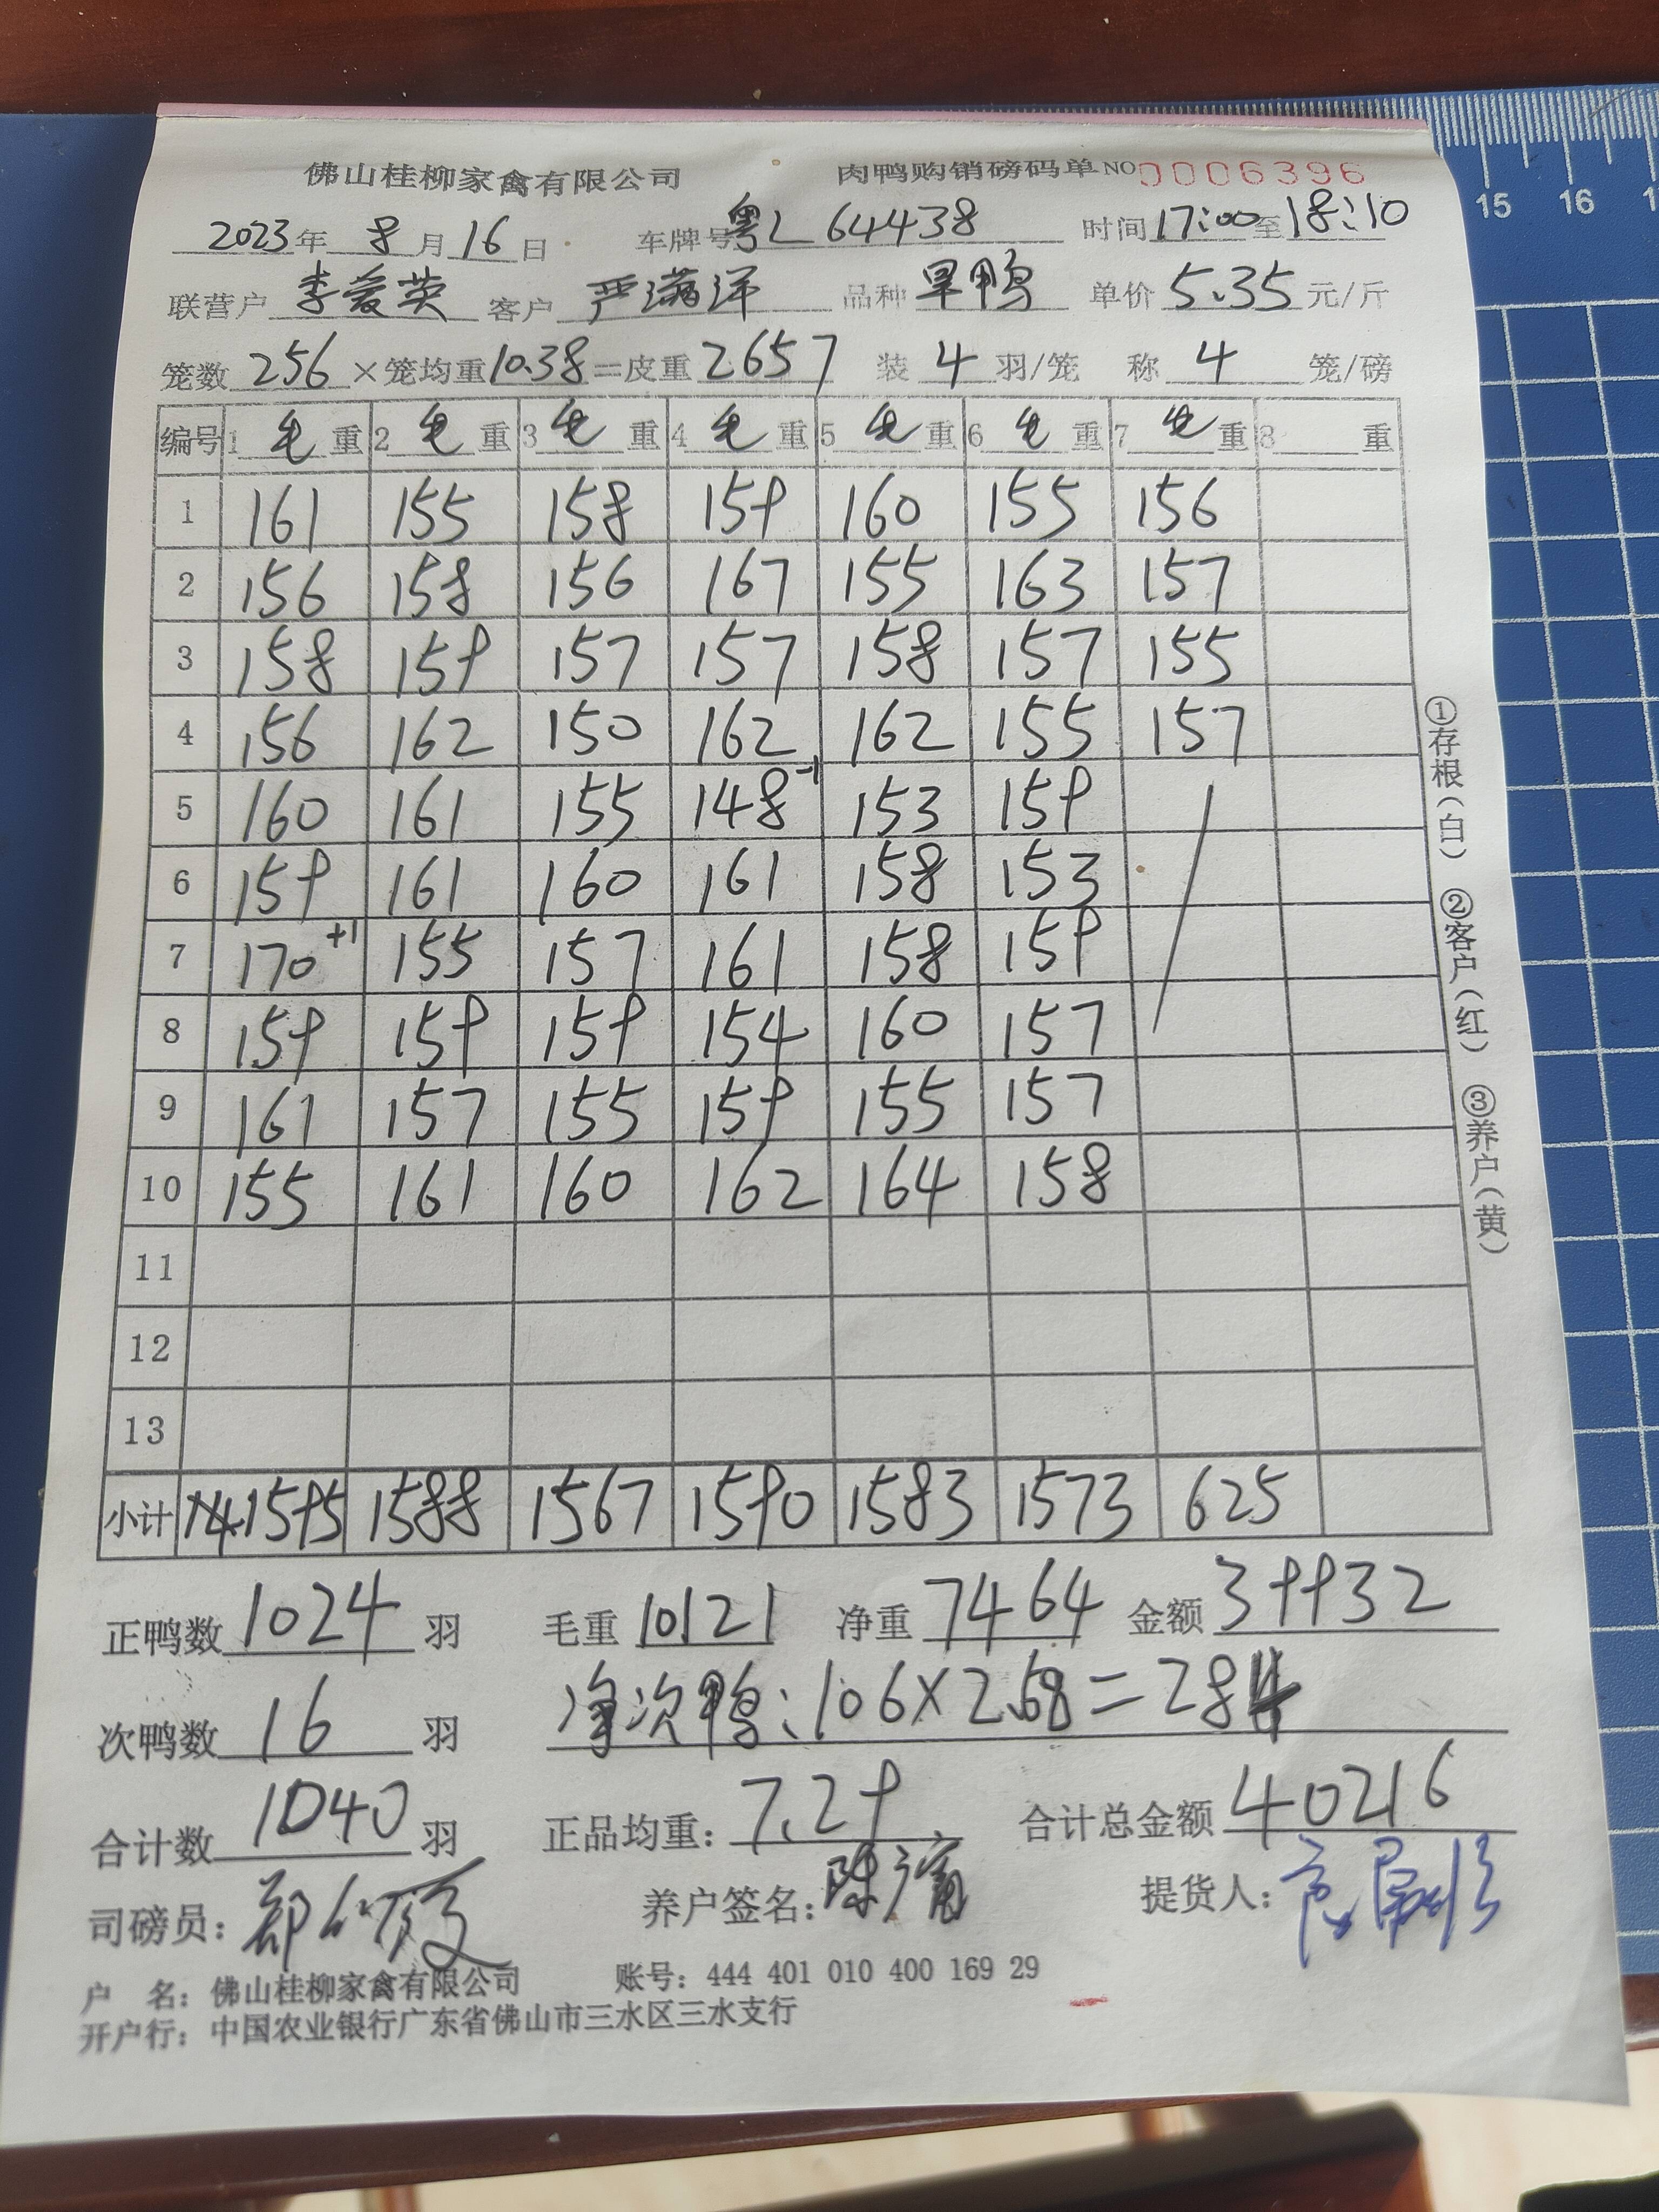 佛山桂柳家禽有限公司 肉鸭购销磅码单 NO 0006396
2023年 8月16日 车牌号 粤L 64438 时间17:00至18:10
联营户 李爱英 客户 严满洋 品种 旱鸭 单价 5.35 元/斤
笼数 256 ×笼均重10.38=皮重 2657 装 4 羽/笼 称 4 笼/磅
编号 1 毛 重 2 毛 重 3 毛 重 4 毛 重 5 毛 重 6 毛 重 7 毛 重 8 重
1 161 155 158 159 160 155 156
2 156 158 156 167 155 163 157
3 158 159 157 157 158 157 155
4 156 162 150 162 162 155 157
5 160 161 155 148-1 153 159
6 159 161 160 161 158 153
7 170+1 155 157 161 158 159
8 159 159 159 154 160 157
9 161 157 155 159 155 157
10 155 161 160 162 164 158
11
12
13
小计 1595 1588 1567 1590 1583 1573 625
正鸭数 1024 羽 毛重 10121 净重 7464 金额 39932
次鸭数 16 羽 净次鸭:106×2.68=284
合计数 1040 羽 正品均重: 7.29 合计总金额 40216
司磅员: 郑 养户签名: 陈 提货人:
户 名: 佛山桂柳家禽有限公司 账号: 444 401 010 400 169 29
开户行: 中国农业银行广东省佛山市三水区三水支行
①存根(白) ②客户(红) ③养户(黄)
15 16